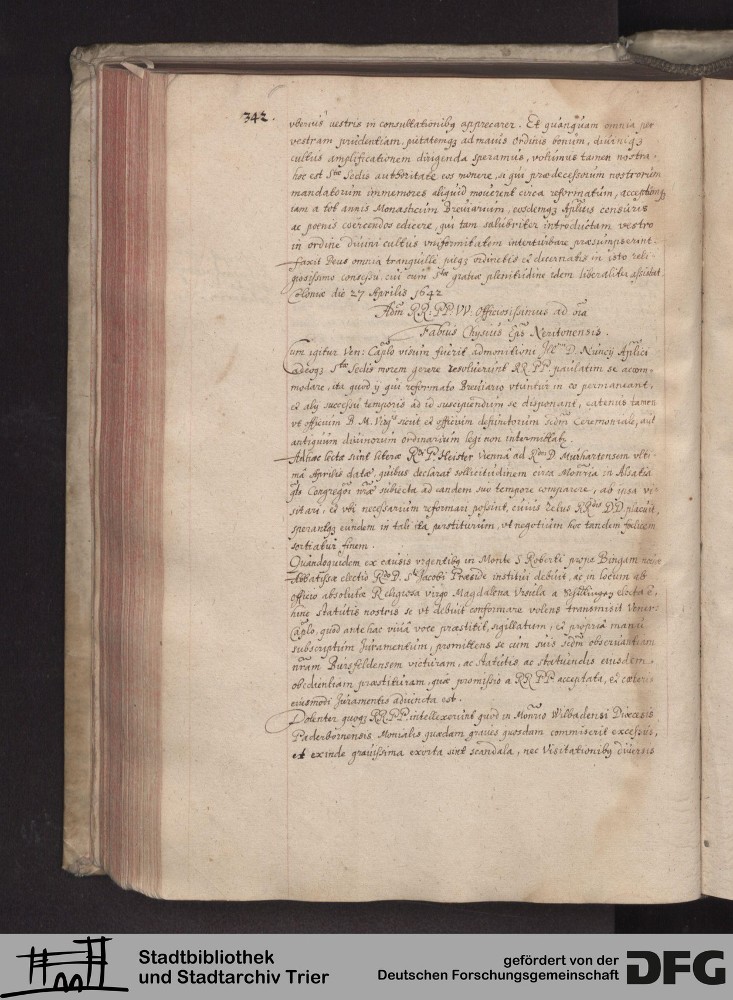 342.
vberius vestris in consultationibq apprecarer. Et quanquam omnia per
vestram prudentiam, pietatemqz ad maius Ordinis bonum, diuiniqz
cultus amplificationem dirigenda speramus, volumus tamen nostra,
hoc est Stæ Sedis authoritate eos monere, si qui prædecessorum nostrorum
mandatorum immemores aliquid mouerent circa reformatum, acceptumqz
iam a tot annis Monasticum Breuiarium, eosdemqz Aplicis censuris
ac poenis coercendos edicere, qui tam salubriter introductam vestro
in ordine diuini cultus vniformitatem interturbare præsumpserint.
Faxit Deus omnia tranquillè pieqz ordinetis et decernatis in isto reli
giosissimo consessu, cui cum Stæ gratiæ plenitudine idem liberaliter assistat
Coloniæ die 27 Aprilis 1642
Adm RR: PP: VV: Officiosissimus ad oia
Fabius Chysius Eps Neritonensis.
Cum igitur Ven: Caplo visum fuerit admonitioni Illmi D. Nuncij Aplici
adeoqz Stæ Sedis morem gerere resoluerunt RR. PP. paulatim se accom-
modare, ita quod ij qui reformato Breuiario vtuntur in eo permaneant,
et alij successu temporis ad id suscipiendum se disponant, eatenus tamen
vt officium B. M. Virgs sicut et officium defunctorum scdm Ceremoniale, aut
antiquum diuinorum ordinarium legi non intermittatr.
Adhæc lectæ sunt literæ Rdi P. Meister Viennâ ad Rdum D. Murhartensem vlti-
mâ Aprilis datæ, quibus declarat sollicitudinem circa Monria in Alsatia
Congregoi nræ subiecta ad eandem suo tempore comparere, ab ipsa vi-
sitari, et vbi necessarium reformari possint, cuius zelus RRdis DD. placuit,
sperantqz eundem in tali ita perstiturum, vt negotium hoc tandem felicem
sortiatur finem.
Quandoquidem ex causis vrgentibq in Monte S. Roberti prope Bingam nouæ
Abbatissæ electio Rdo P. Sti Jacobi Præside institui debuit, ac in locum ab
officio absolutæ Religiosa virgo Magdalena Vrsula a electa e,
hinc statutis nostris se vt debuit conformare volens transmisit Vener:
Caplo, quod ante hac viuâ voce præstitit, sigillatum, et propria manu
subscriptum Juramentum, promittens se cum suis scdm obseruantiam
nram Bursfeldensem victuram, ac statutis ac statuendis eiusdem,
obedientiam præstituram, quæ promissio a RR. PP. acceptata, et cæteris
eiusmodi Juramentis adiuncta est.
Dolenter quoqz RR. PP. intellexerunt quod in Monrio Wilbadensi Dioecesis
Paderbornensis Moniales quædam graues quosdam commiserit excessus,
et exinde grauissima exorta sint scandala, nec Visitationibq diuersis
Stadtbibliothek
und Stadtarchiv Trier
gefördert von der
Deutschen Forschungsgemeinschaft
DFG